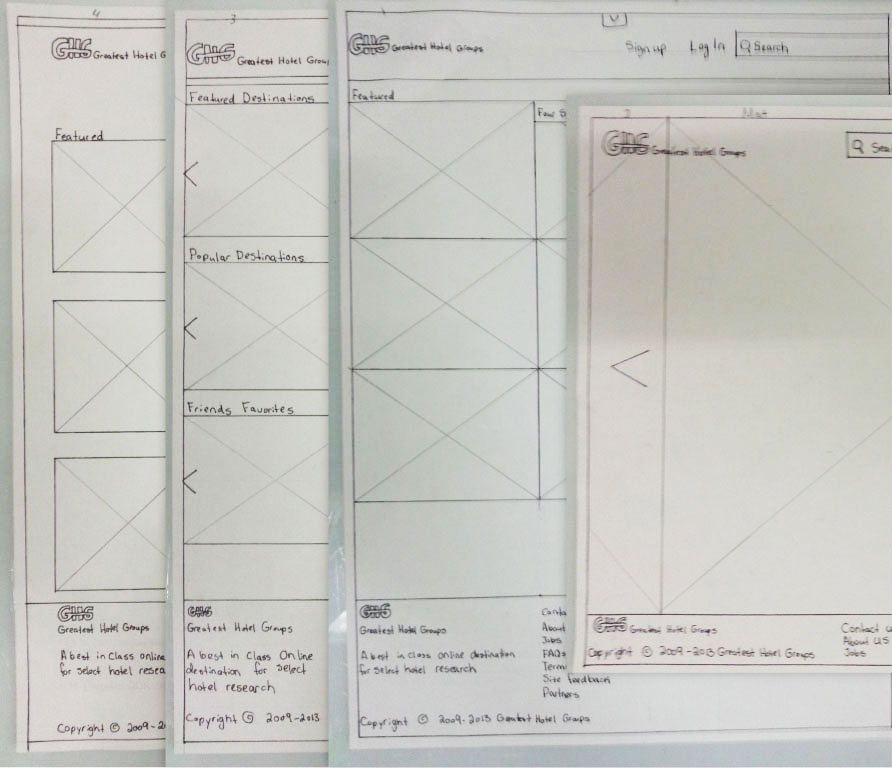 4
GHG Greatest Hotel G
Featured
GHG
Greatest Hotel Groups
A best in Class online
for select hotel resea
Copyright © 2009-2
3
GHG Greatest Hotel Grou
Featured Destinations
Popular Destinations
Friends Favorites
GHG
Greatest Hotel Groups
A best in Class Online
destination for select
hotel research
Copyright © 2009-2013
GHG Greatest Hotel Groups
Sign up Log In Search
Featured
Four S
GHG
Greatest Hotel Groups
A best in class online destination
for select hotel research
Conta
About
Jobs
FAQs
Term
Site feedback
Partners
Copyright © 2009-2013 Greatest Hotel Groups
2
GHG Greatest Hotel Groups
Sea
GHG Greatest Hotel Groups
Copyright © 2009-2013 Greatest Hotel Groups
Contact u
About us
Jobs